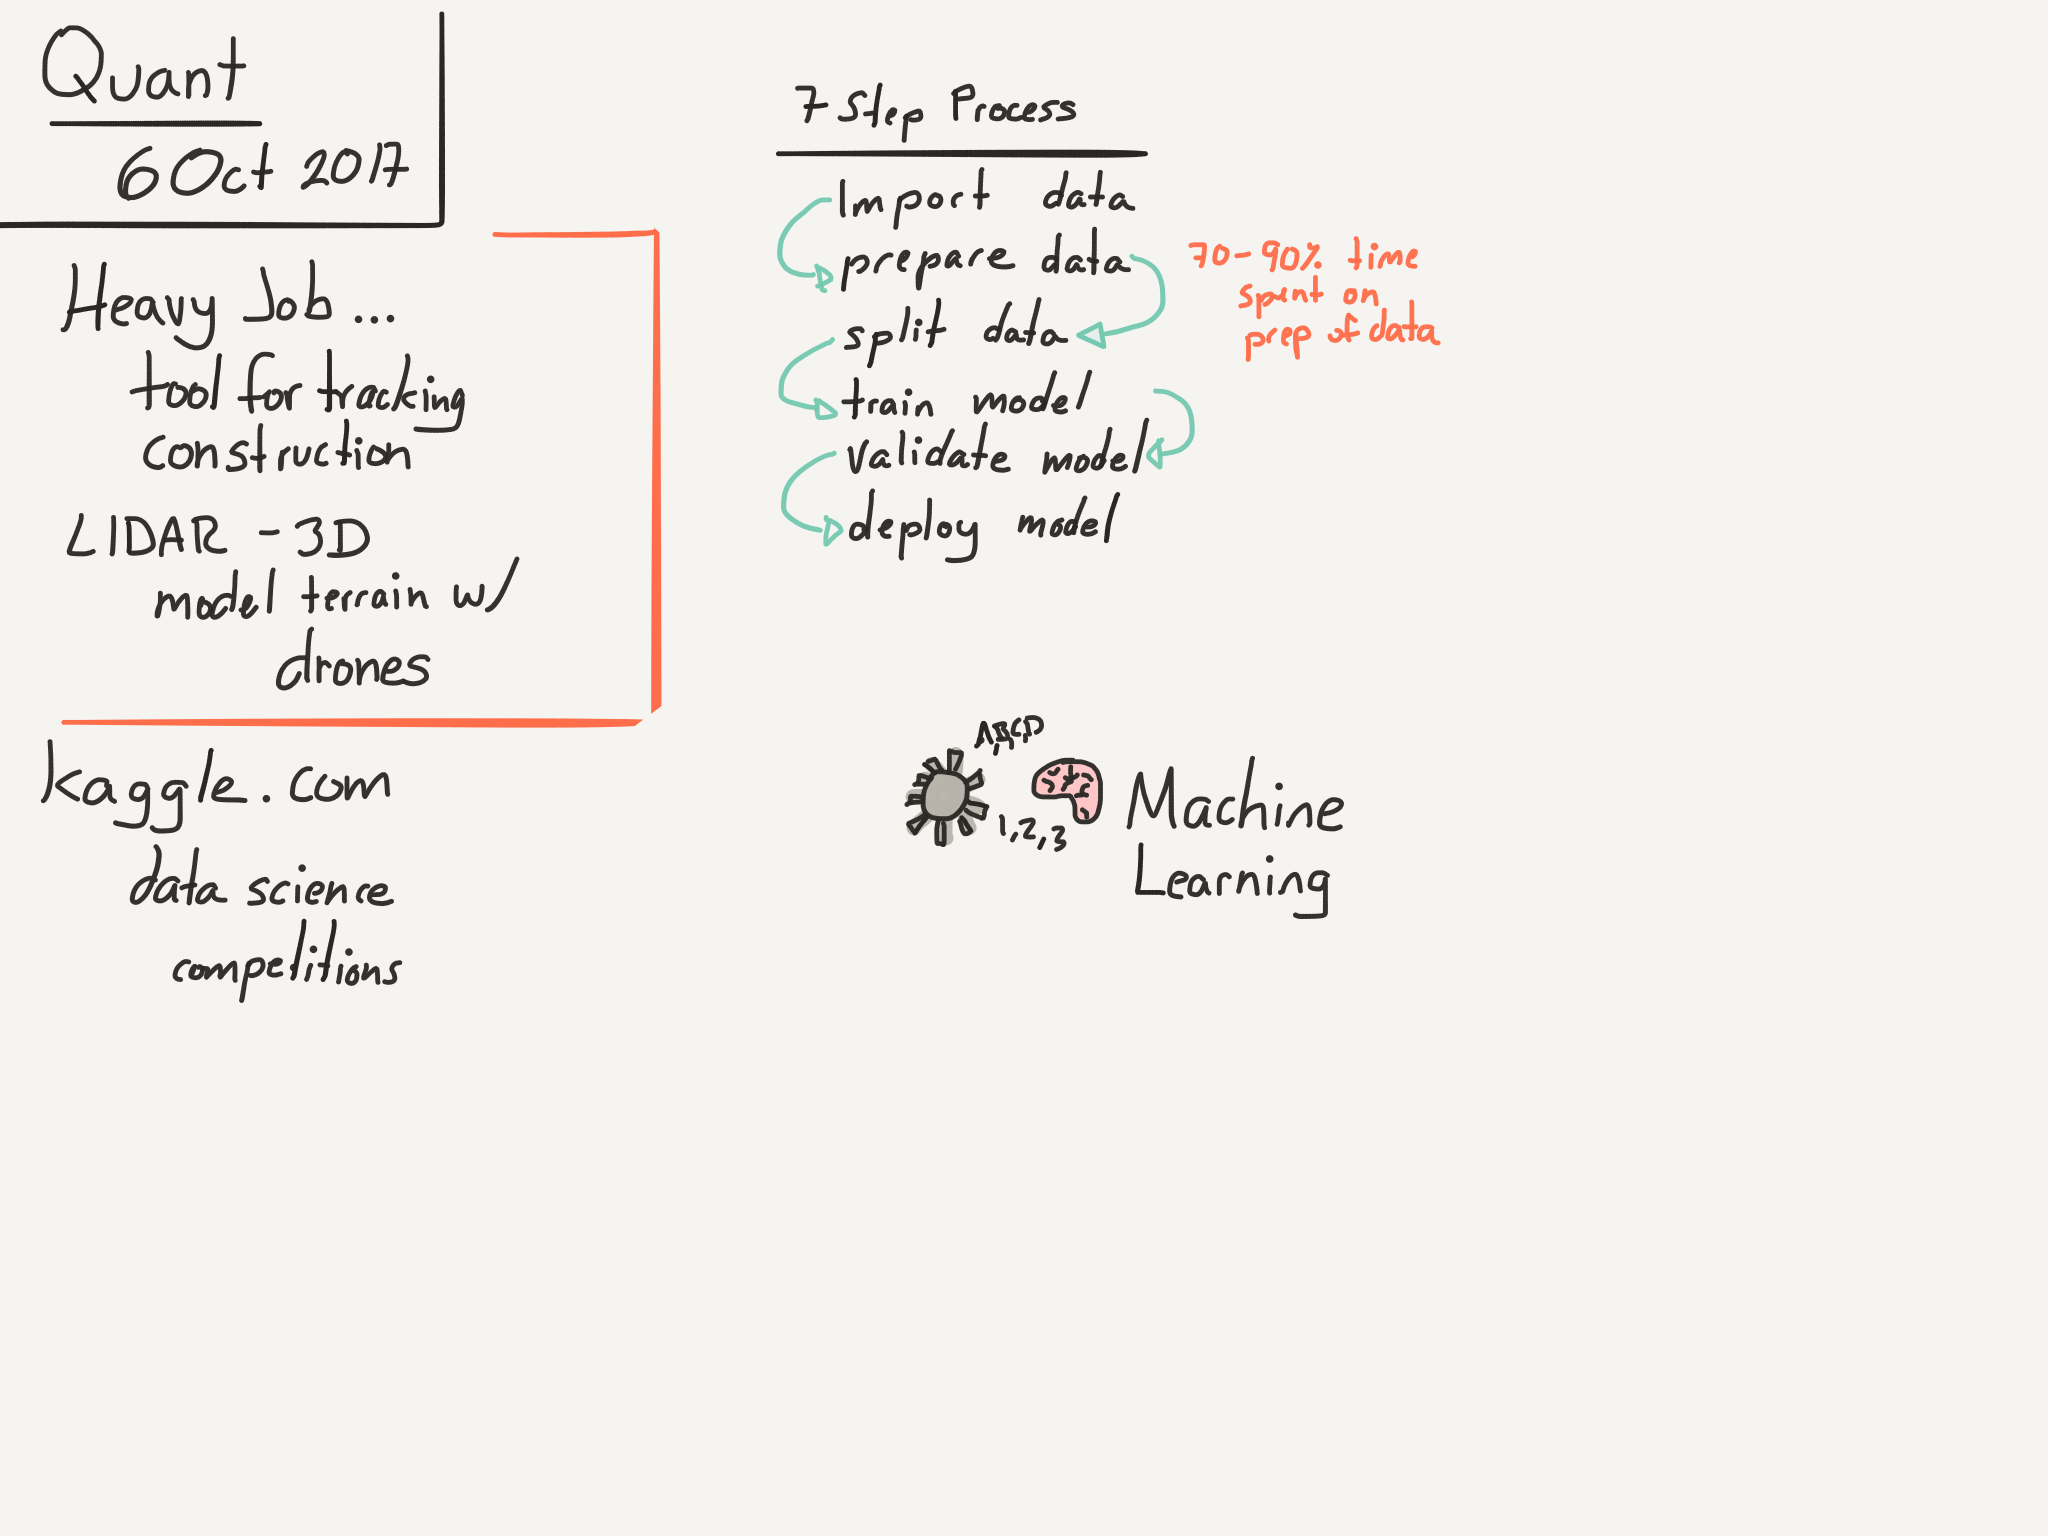 Quant
6 Oct 2017
Heavy Job...
tool for tracking
construction
LIDAR - 3D
model terrain w/
drones
kaggle.com
data science
competitions
7 Step Process
Import data
prepare data
split data
train model
validate model
deploy model
70-90% time
spent on
prep of data
A,B,C,D
1,2,3
Machine
Learning